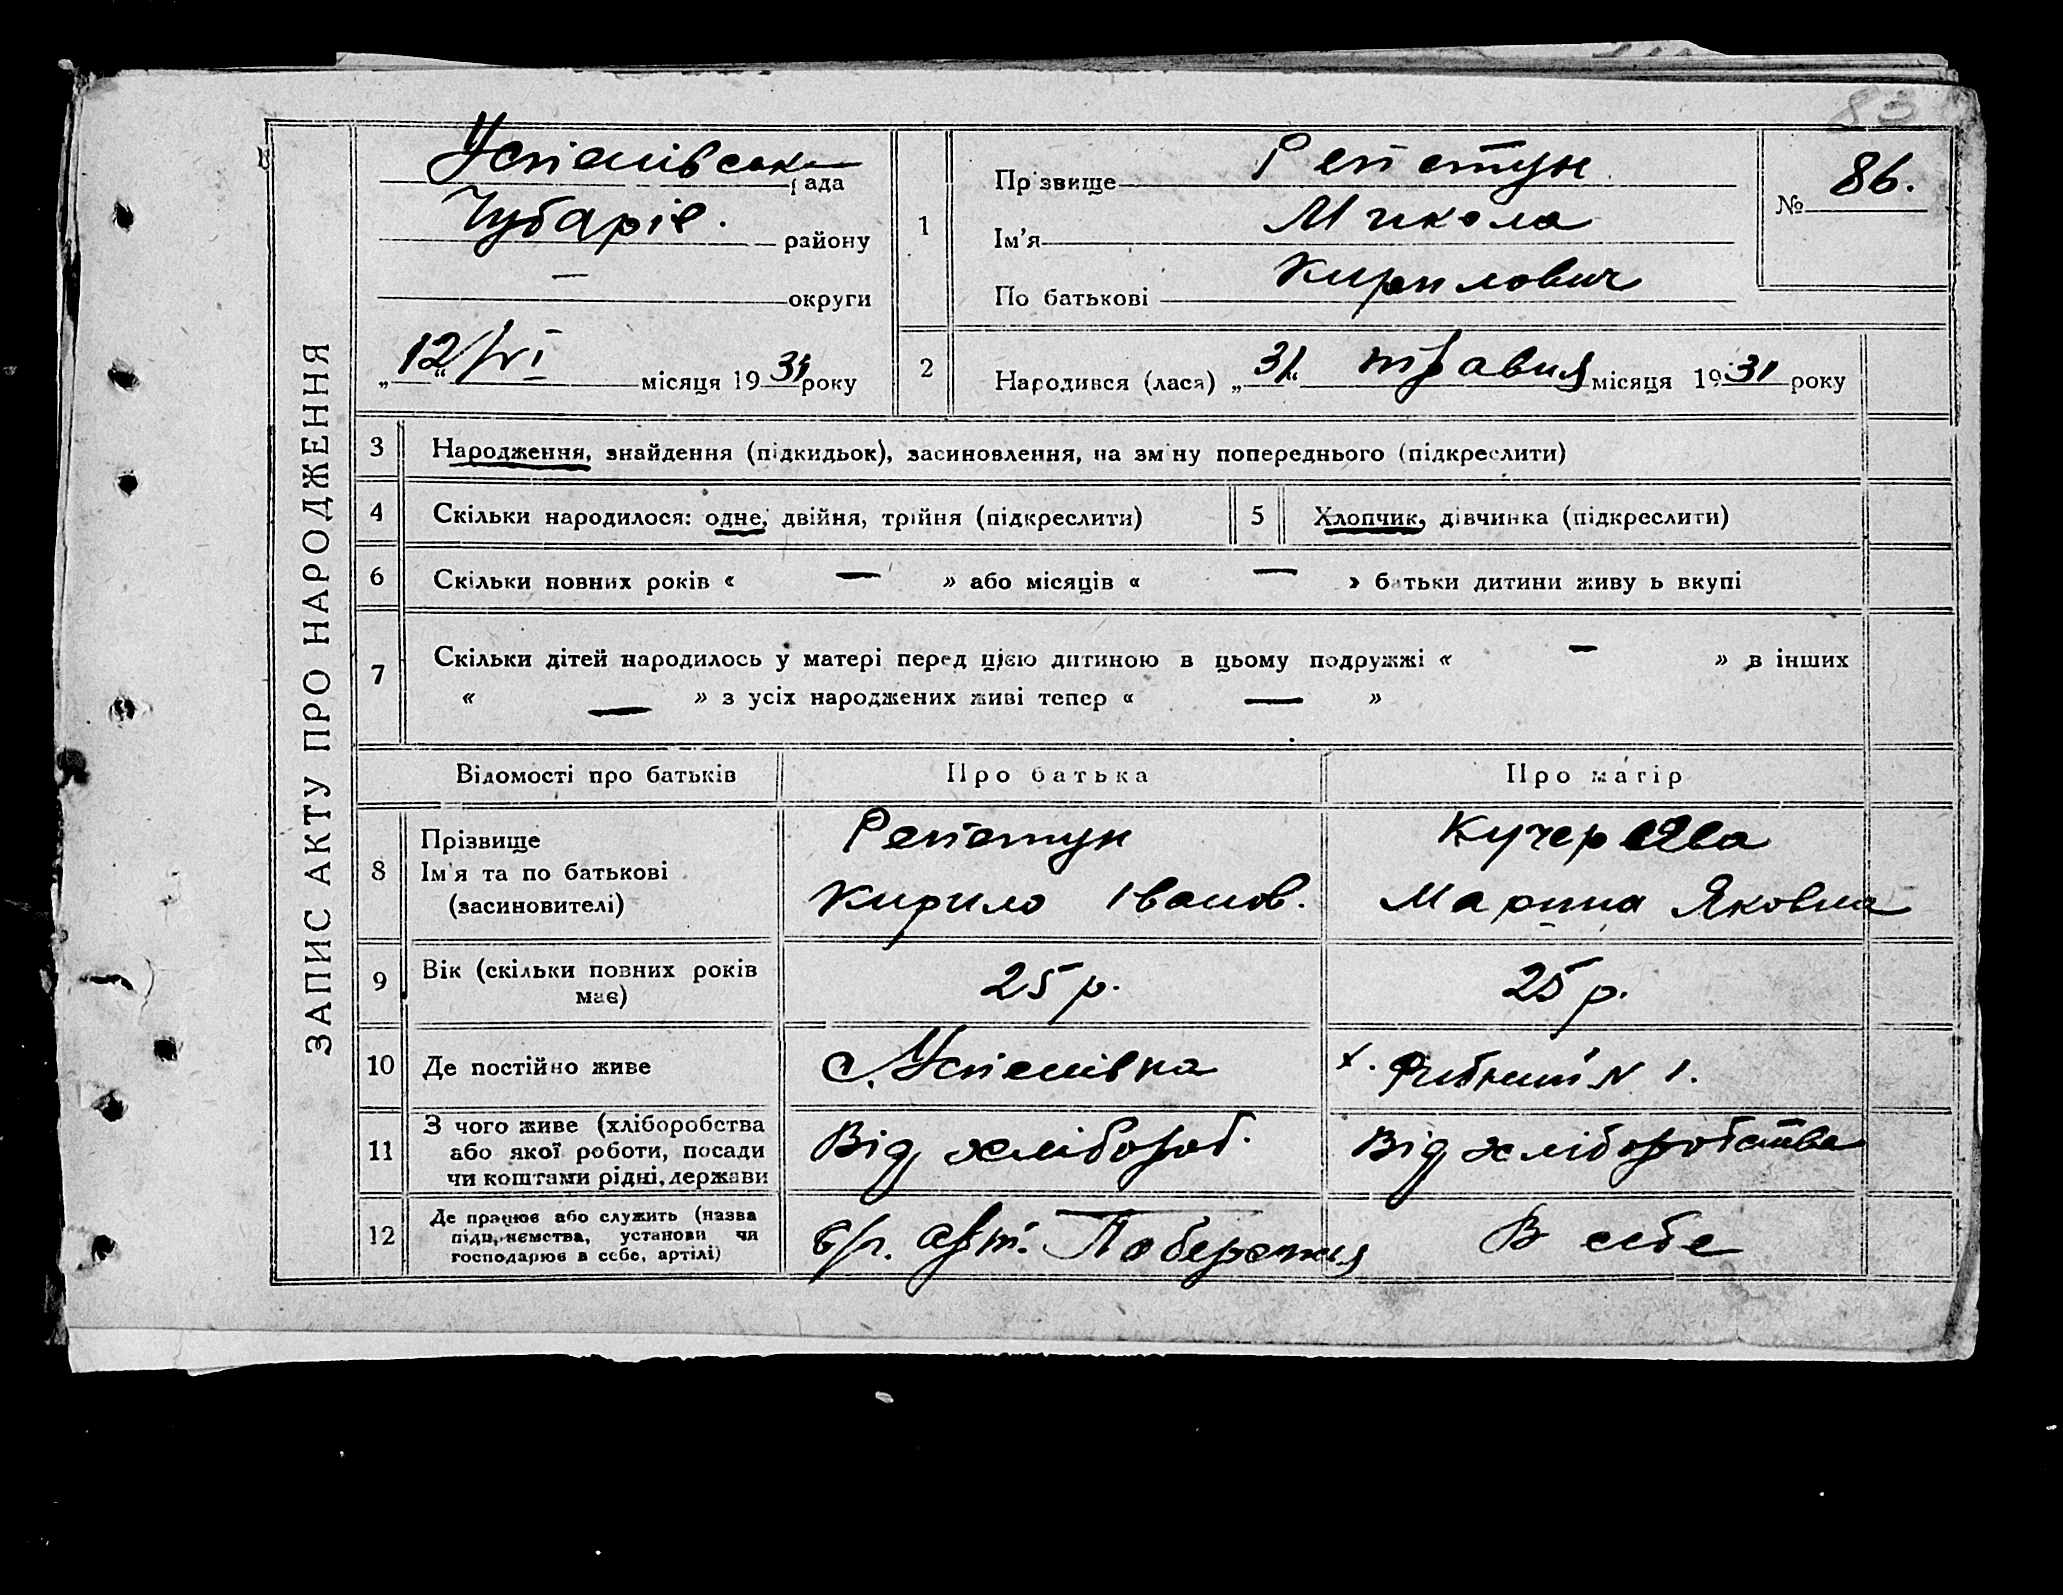 83
ЗАПИС АКТУ ПРО НАРОДЖЕННЯ
Успенівська рада
Чубарів. району
— округи
„12“ /VI місяця 1931 року
1
Прізвище Репетун
Ім'я Микола
По батькові Кирилович
№ 86.
2
Народився (лася) „31“ травня місяця 1931 року
3 Народження, знайдення (підкидьок), засиновлення, на зміну попереднього (підкреслити)
4 Скільки народилося: одне, двійня, трійня (підкреслити)
5 Хлопчик, дівчинка (підкреслити)
6 Скільки повних років « — » або місяців « — » батьки дитини живуть вкупі
7 Скільки дітей народилось у матері перед цією дитиною в цьому подружжі « — » в інших
« — » з усіх народжених живі тепер « — »
Відомості про батьків Про батька Про матір
8 Прізвище
Ім'я та по батькові
(засиновителі)
Репетун
Кирило Іванов.
Кучерява
Марина Яковна
9 Вік (скільки повних років
має)
25 р.
25 р.
10 Де постійно живе
С. Успенівка
х. N 1.
11 З чого живе (хліборобства
або якої роботи, посади
чи коштами рідні, держави
Від хлібороб.
Від хліборобства
12 Де працює або служить (назва
підприємства, установи чи
господарює в себе, артілі)
арт. Побережжя
В себе